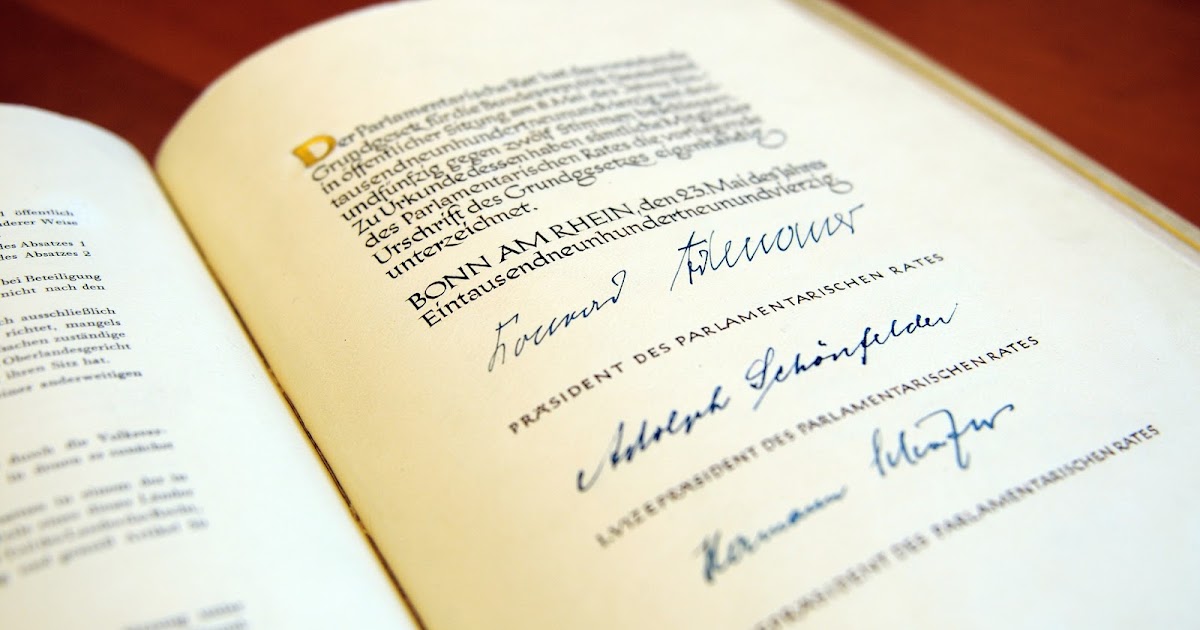 1 öffentlich
nderer Weise
des Absatzes 1
des Absatzes 2
bei Beteiligung
nicht nach den
ch ausschließlich
richtet, mangels
sachen zuständige
Oberlandesgericht
ihren Sitz hat.
einer anderweitigen
durch die Volksver-
in denen es zunächst
Der Parlamentarische Rat hat das vorstehende
Grundgesetz für die Bundesrepublik Deutschland
in öffentlicher Sitzung am 8. Mai des Jahres
tausendneunhundertneunundvierzig mit
undfünfzig gegen zwölf Stimmen
Zu Urkunde dessen haben sämtliche Mitglieder
des Parlamentarischen Rates die vorliegende
Urschrift des Grundgesetzes eigenhändig
unterzeichnet.
BONN AM RHEIN, den 23. Mai des Jahres
Eintausendneunhundertneunundvierzig
Konrad Adenauer
PRÄSIDENT DES PARLAMENTARISCHEN RATES
Adolph Schönfelder
I. VIZEPRÄSIDENT DES PARLAMENTARISCHEN RATES
Hermann Schäfer
PRÄSIDENT DES PARLAMENTARISCHEN RATES